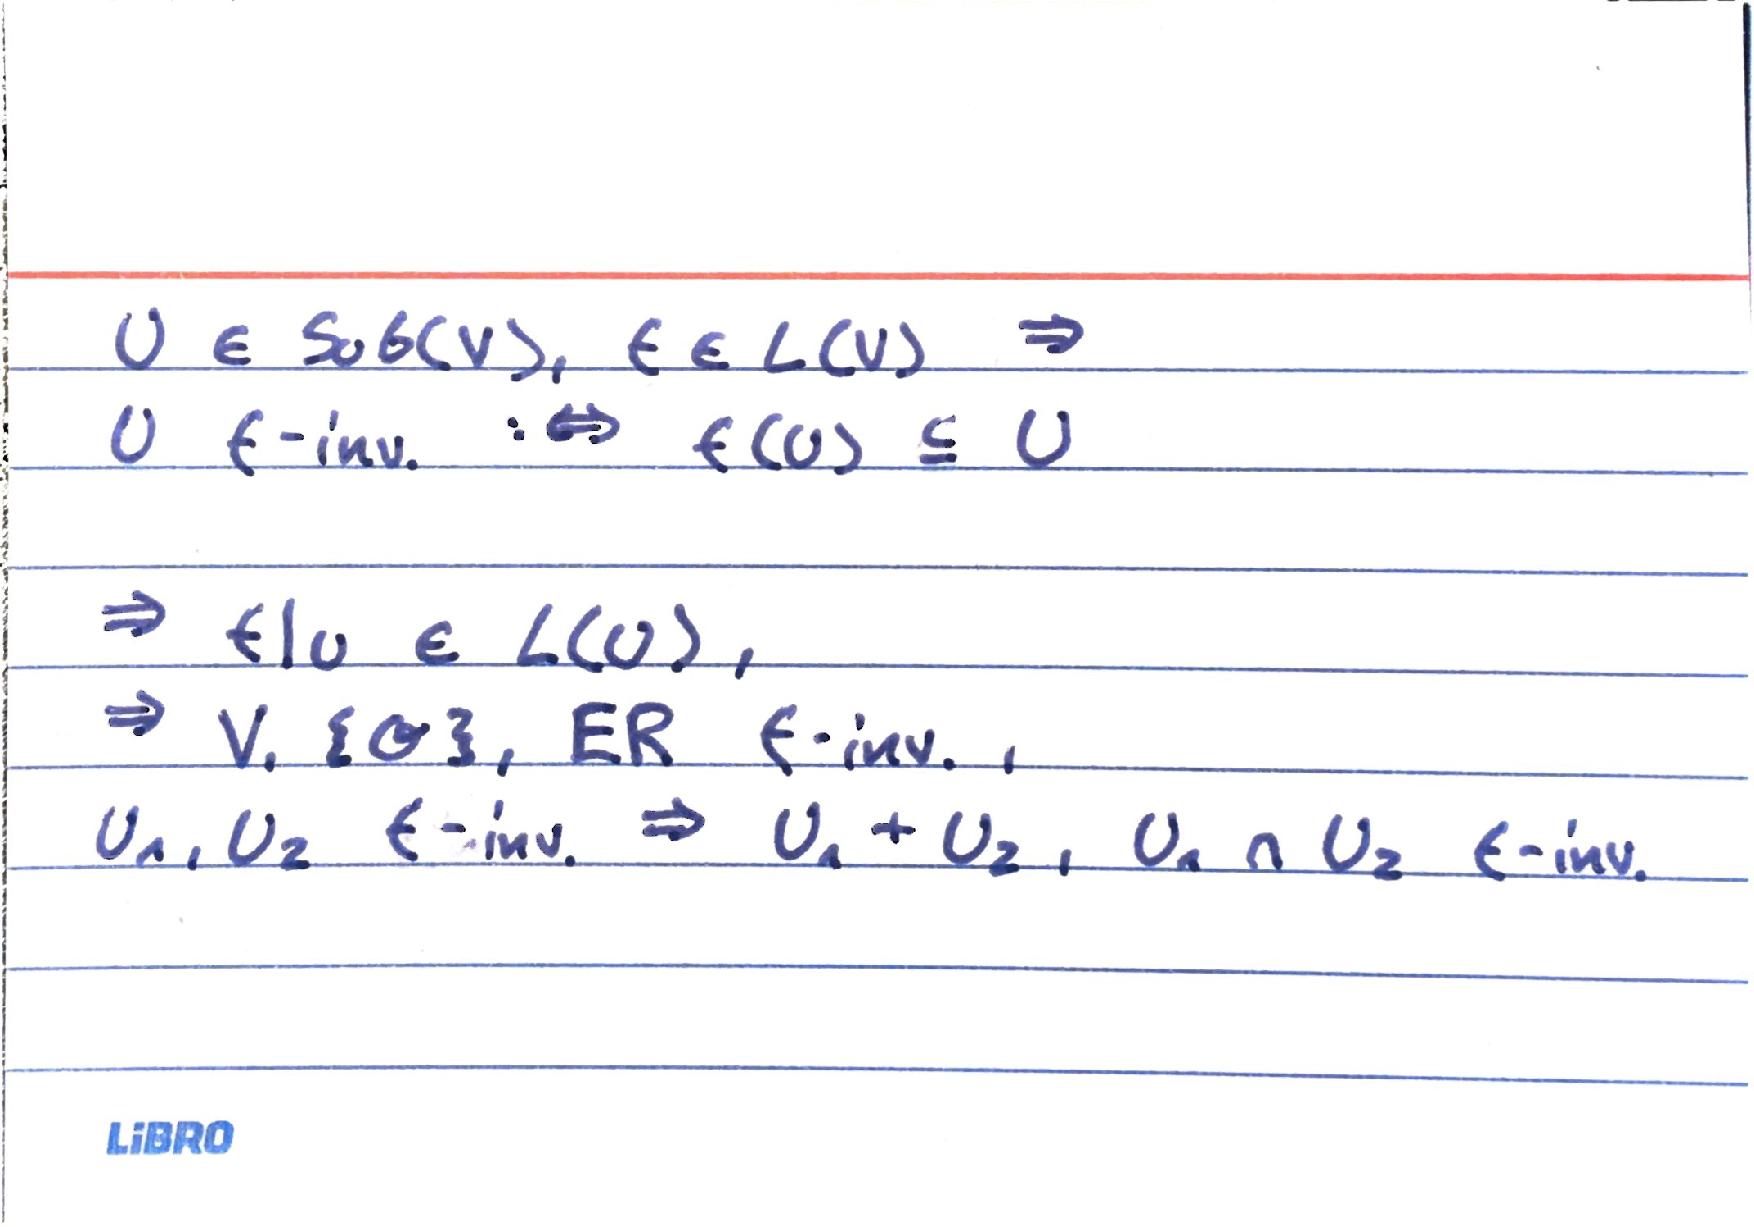 U ∈ Sub(V), f ∈ L(V) ⇒
U f-inv. :⇔ f(U) ⊆ U
⇒ f|U ∈ L(U),
⇒ V, {0}, ER f-inv.,
U₁, U₂ f-inv. ⇒ U₁ + U₂, U₁ ∩ U₂ f-inv.
LiBRO